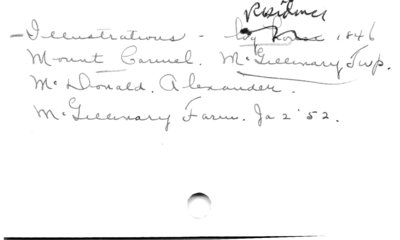 Residence
- Illustrations - log house 1846
Mount Carmel. McGillivray Twp.
McDonald. Alexander.
McGillivray Farm. Ja 2 '52.